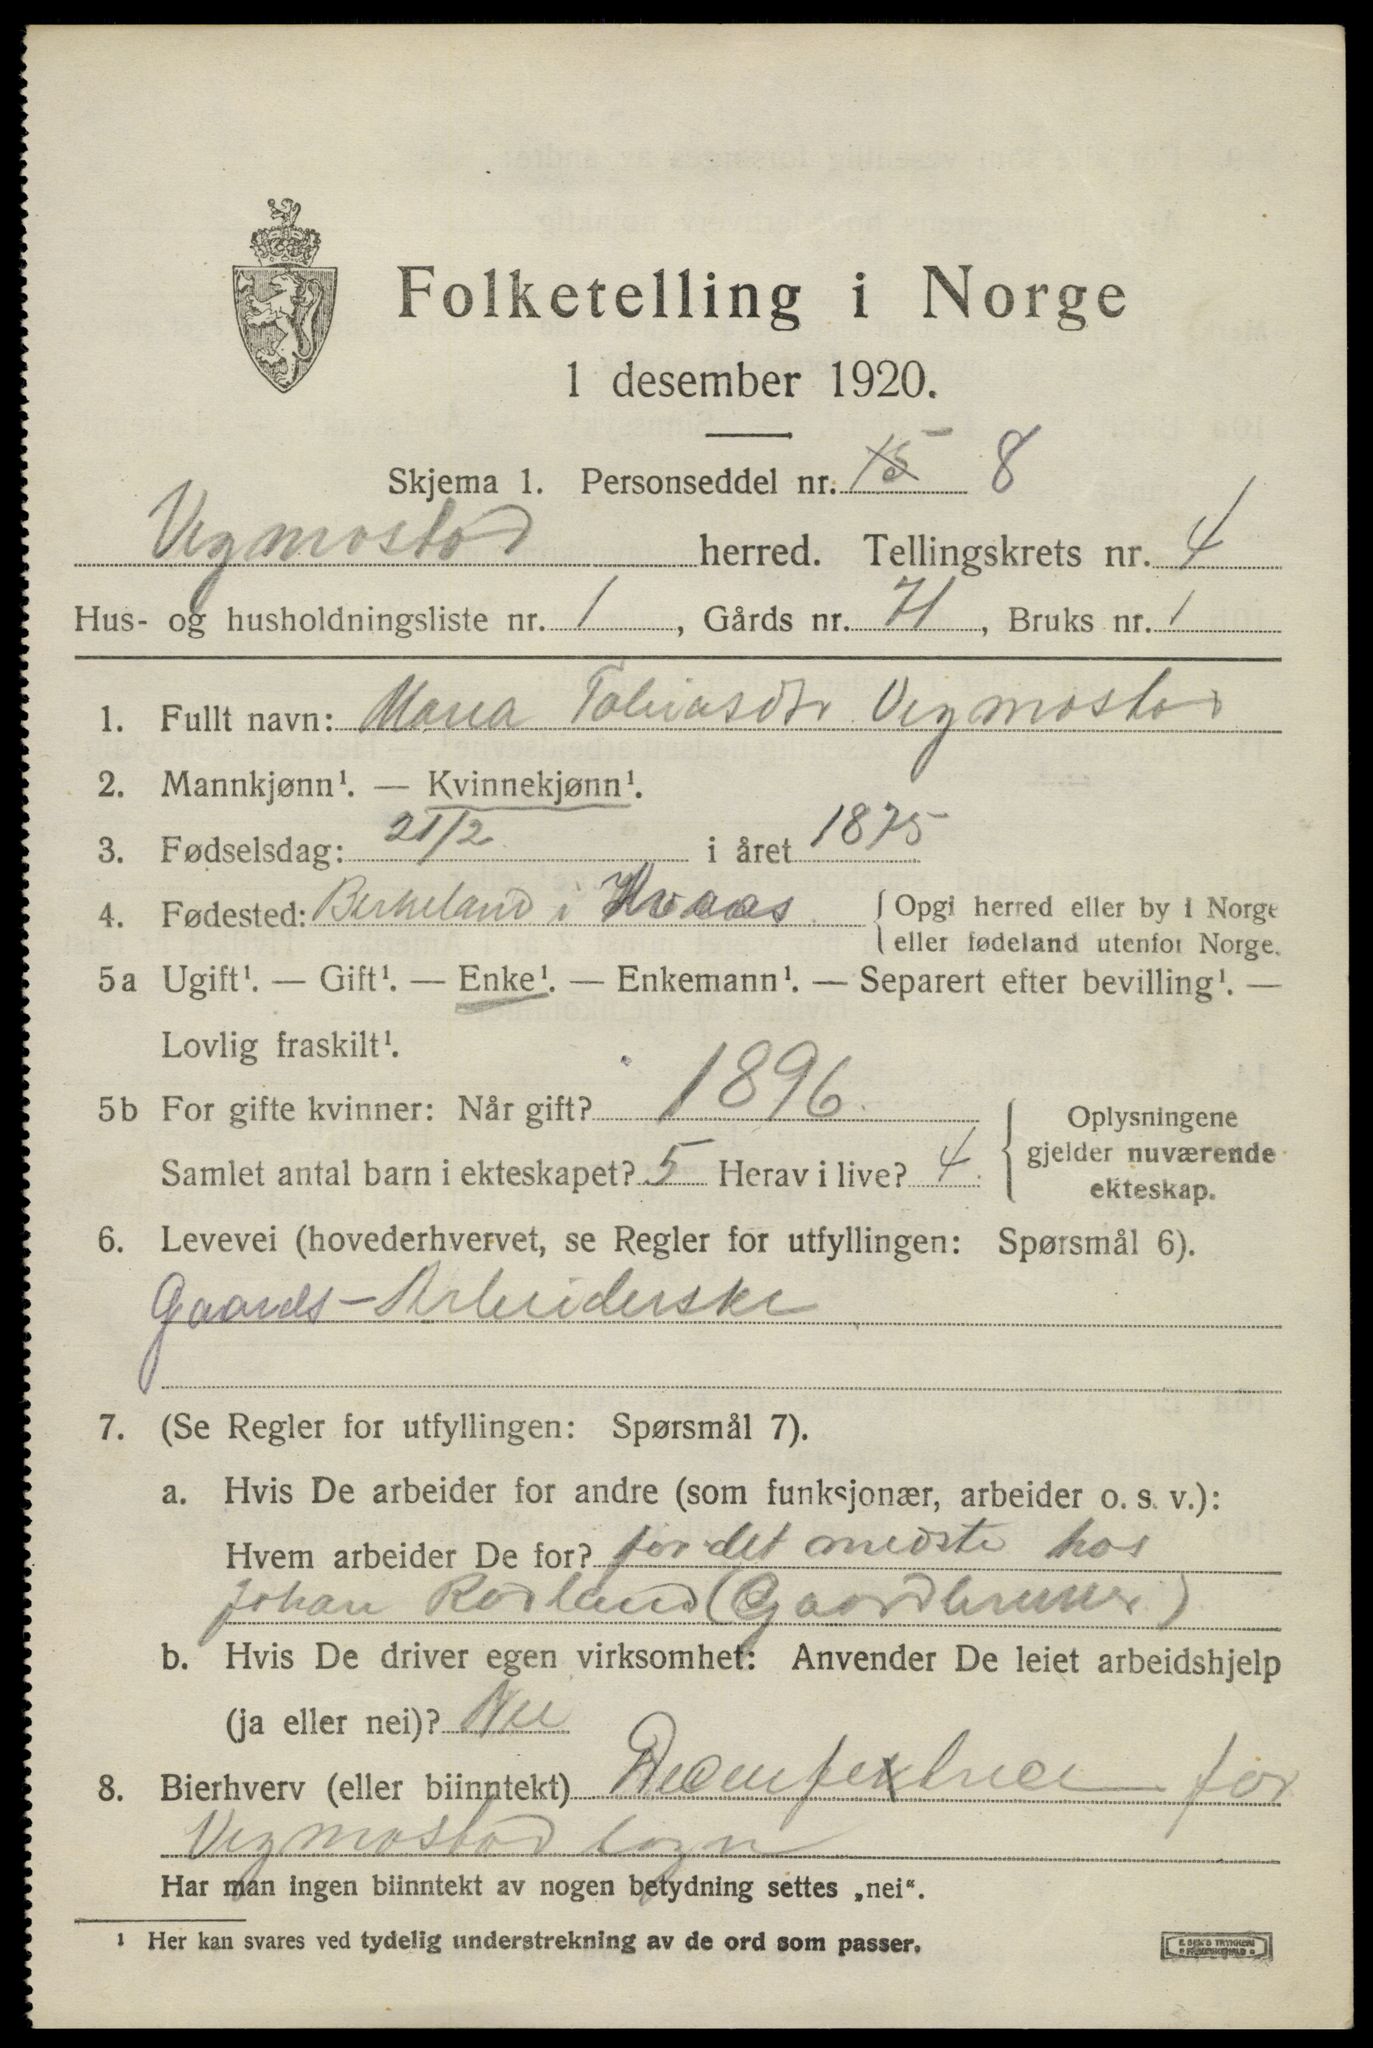 Folketelling i Norge
1 desember 1920.
Skjema 1. Personseddel nr. 15 8
Vigmostad herred. Tellingskrets nr. 4
Hus- og husholdningsliste nr. 1, Gårds nr. 71, Bruks nr. 1
1. Fullt navn: Maria Tobiasdtr Vigmostad
2. Mannkjønn¹. — Kvinnekjønn¹.
3. Fødselsdag: 21/2 i året 1875
4. Fødested: Birkeland i Kvaas { Opgi herred eller by i Norge
eller fødeland utenfor Norge.
5a Ugift¹. — Gift¹. — Enke¹. — Enkemann¹. — Separert efter bevilling¹. —
Lovlig fraskilt¹.
5b For gifte kvinner: Når gift? 1896
Samlet antal barn i ekteskapet? 5 Herav i live? 4
Oplysningene
gjelder nuværende
ekteskap.
6. Levevei (hovederhvervet, se Regler for utfyllingen: Spørsmål 6).
Gaards-Arbeiderske
7. (Se Regler for utfyllingen: Spørsmål 7).
a. Hvis De arbeider for andre (som funksjonær, arbeider o. s. v.):
Hvem arbeider De for? for det medste hos
Johan Rødland (Gaardbruker)
b. Hvis De driver egen virksomhet: Anvender De leiet arbeidshjelp
(ja eller nei)? Nei
8. Bierhverv (eller biinntekt) for
Vigmostad sogn
Har man ingen biinntekt av nogen betydning settes „nei“.
¹ Her kan svares ved tydelig understrekning av de ord som passer.